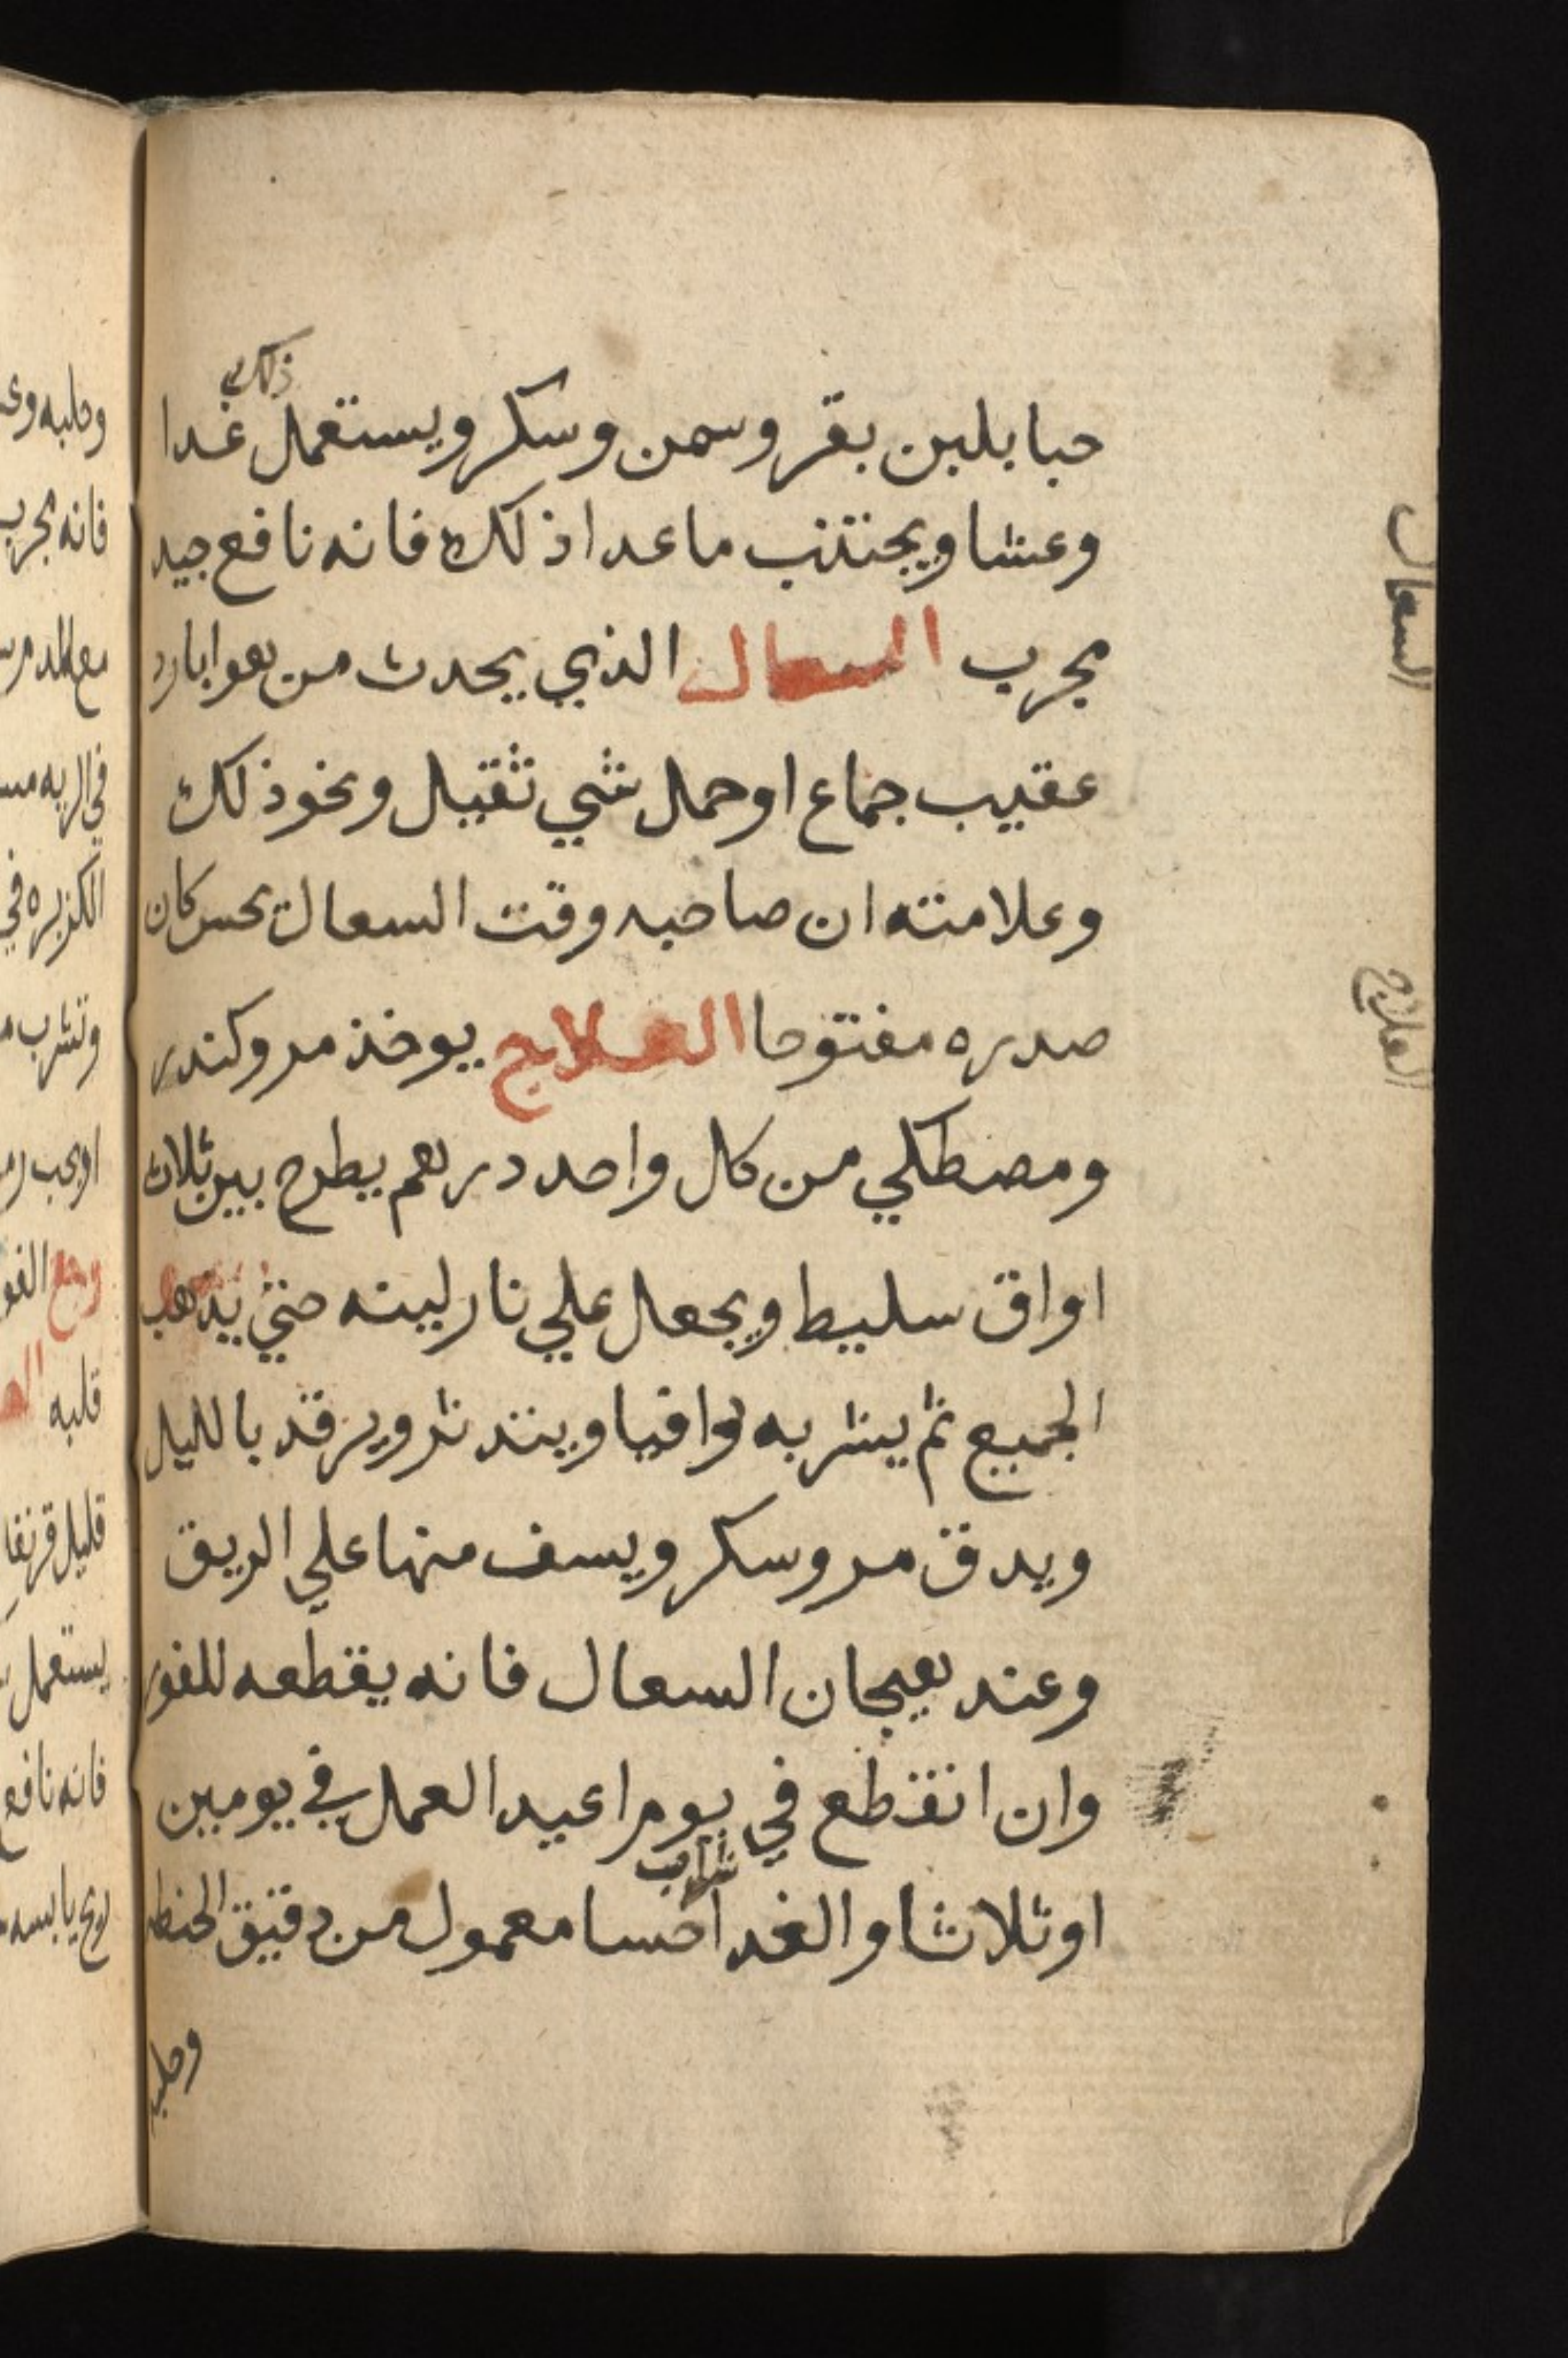 ذلك
حبا بلبن بقر وسمن وسكر ويستعمل غدا
وعشا ويجتنب ما عدا ذلك فانه نافع جيد
مجرب السعال الذي يحدث من هوا بارد
عقيب جماع او حمل شي ثقيل ونحو ذلك
وعلامته ان صاحبه وقت السعال يحس كان
صدره مفتوحا العلاج يوخذ مر وكندر
ومصطكي من كل واحد درهم يطرح بين ثلاث
اواق سليط ويجعل علي نار لينه حتي يذهب
الجميع ثم يشربه فواقيا ويتدثر ويرقد بالليل
ويدق مر وسكر ويسف منها علي الريق
وعند هيجان السعال فانه يقطعه للفور
وان انقطع في يوم اعيد العمل في يومين
شراب
او ثلاثا والغدا حسا معمول من دقيق الحنطه
وحلبه
السعال
العلاج
وحلبه
فانه مجرب
في الريه
الكزبره في
وتشرب
وجع
قلبه
قليل
يستعمل
فانه نافع
يابسه